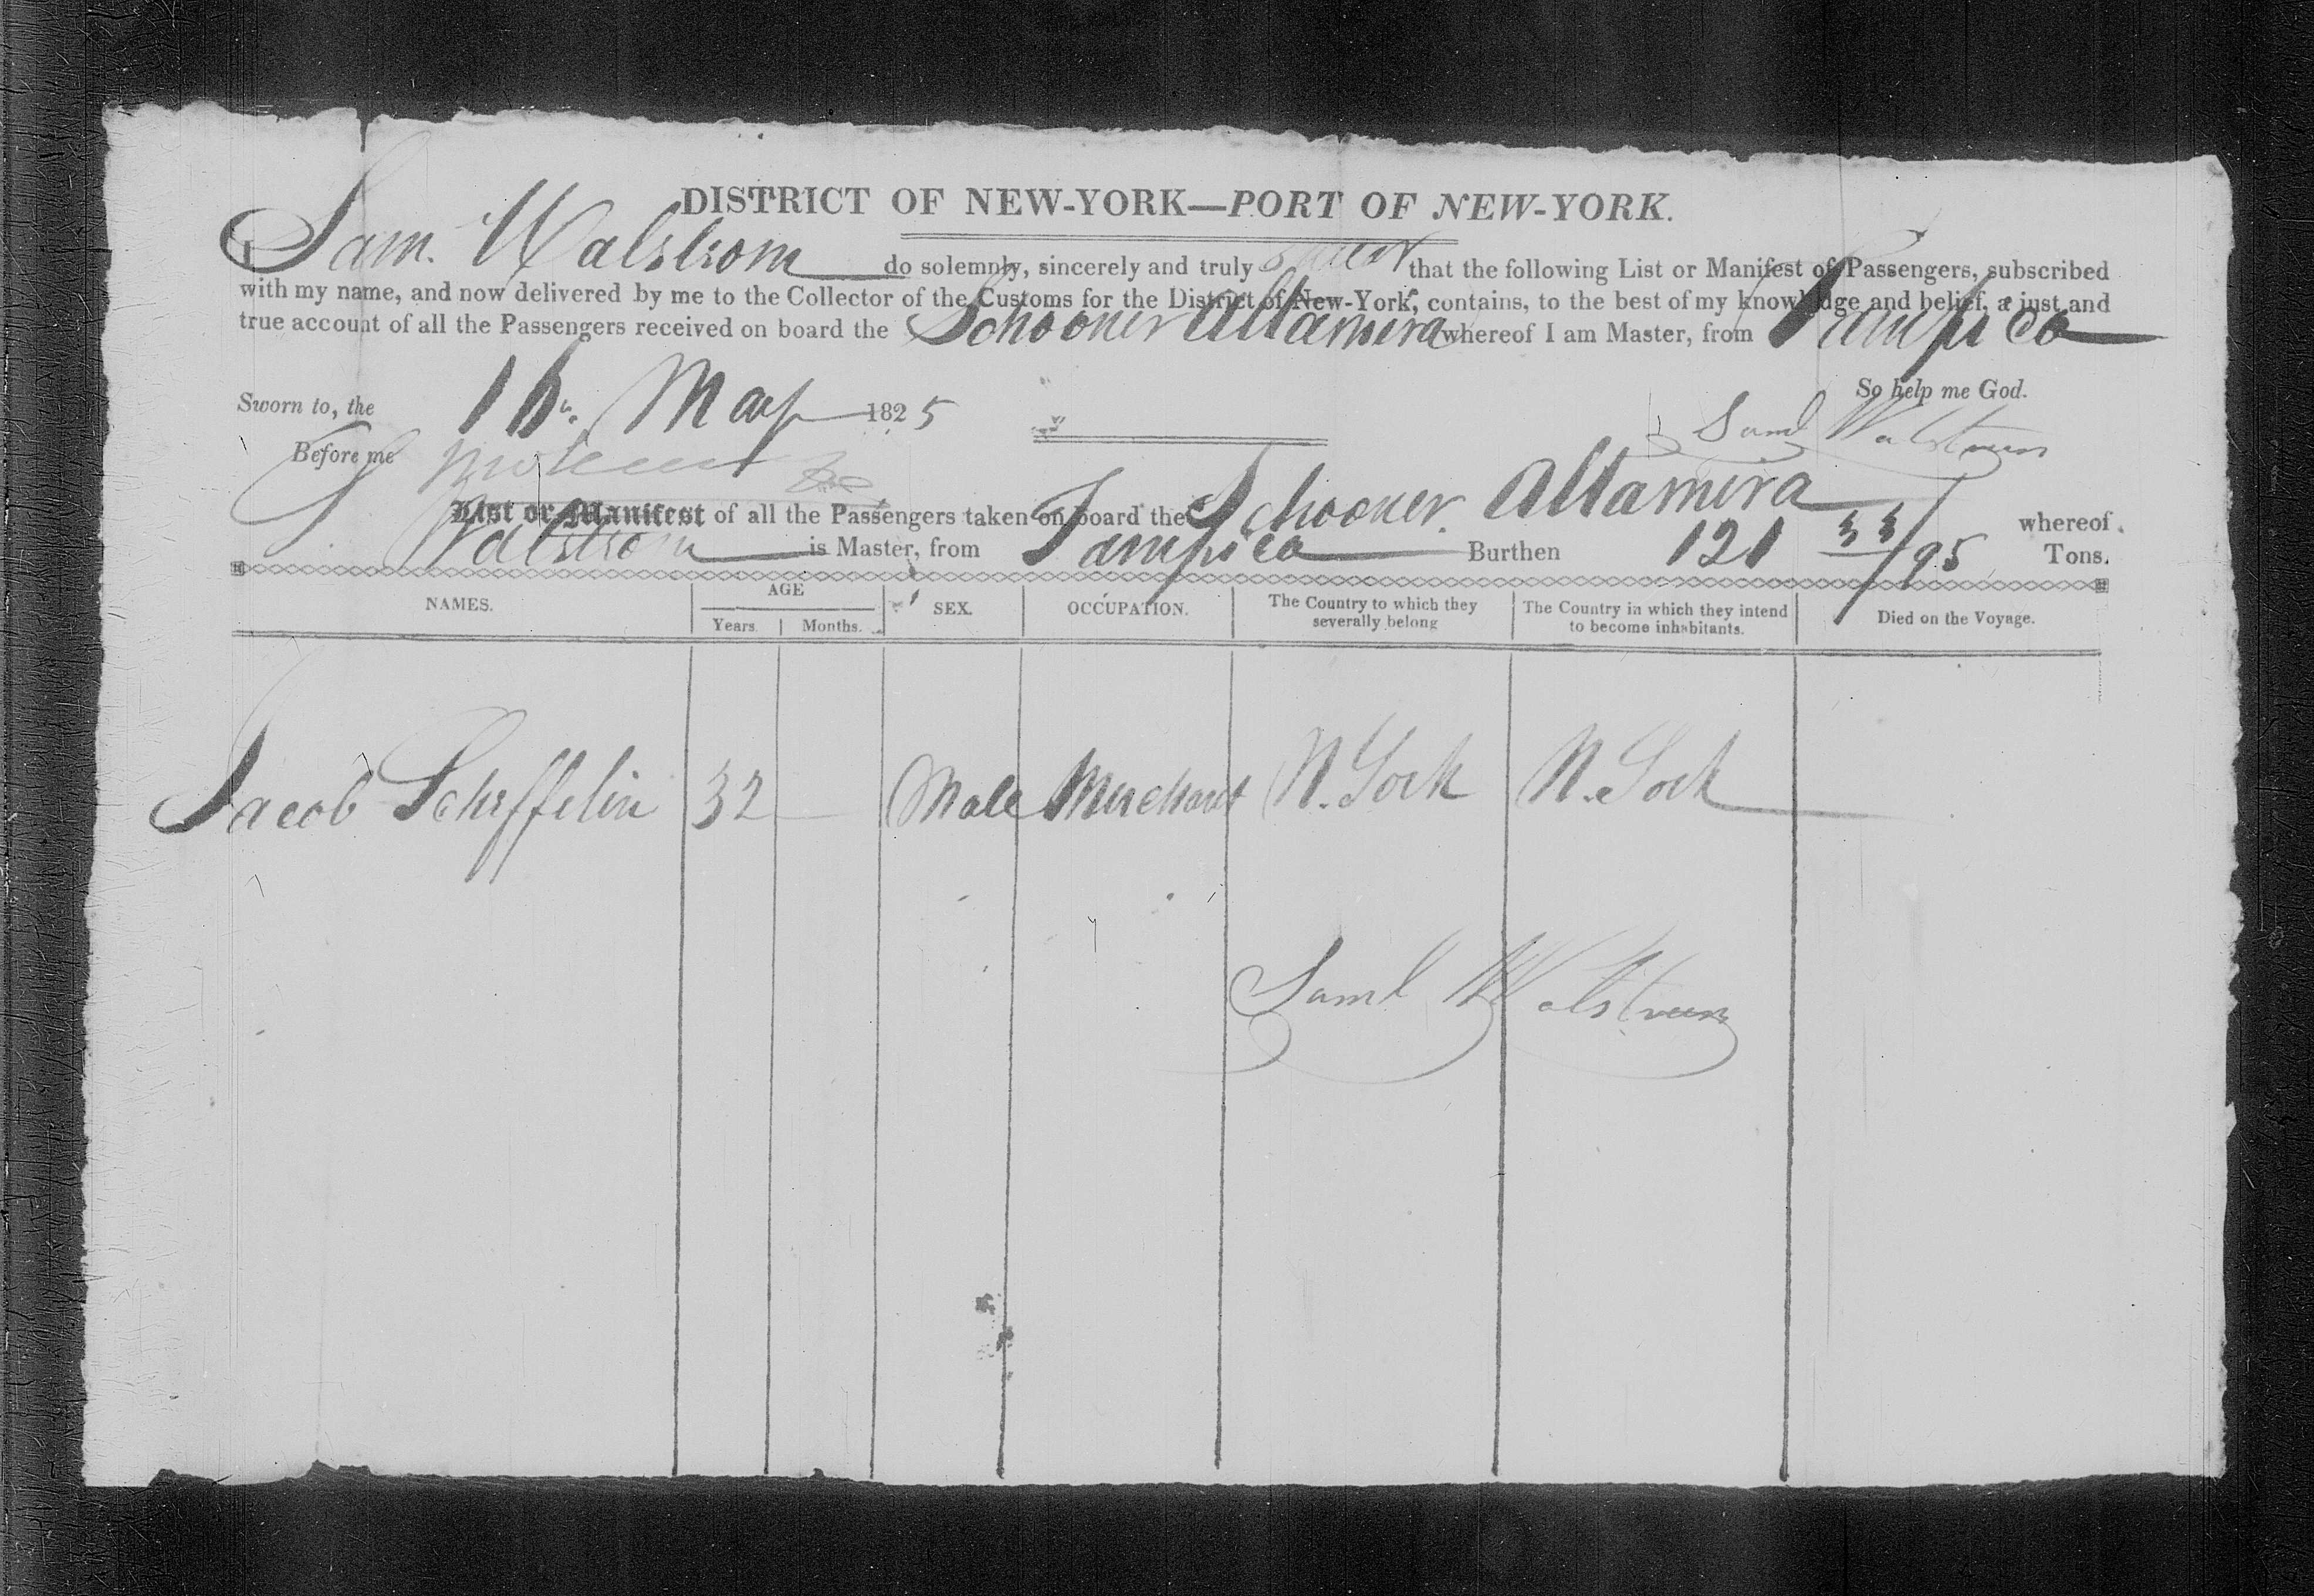 DISTRICT OF NEW-YORK—PORT OF NEW-YORK.
I Sam. Walstrom do solemnly, sincerely and truly swear that the following List or Manifest of Passengers, subscribed
with my name, and now delivered by me to the Collector of the Customs for the District of New-York, contains, to the best of my knowledge and belief, a just and
true account of all the Passengers received on board the Schooner Altamira whereof I am Master, from Tampico
So help me God.
Sworn to, the 16 May 1825
Saml Walstrum
Before me
List or Manifest of all the Passengers taken on board the Schooner Altamira whereof
Walstrom is Master, from Tampico Burthen 121 33/95 Tons.
NAMES. AGE Years. Months. SEX. OCCUPATION. The Country to which they severally belong The Country in which they intend to become inhabitants. Died on the Voyage.
Jacob Scheffelin 32 Male Merchant N. York N. York
Saml Walstrum